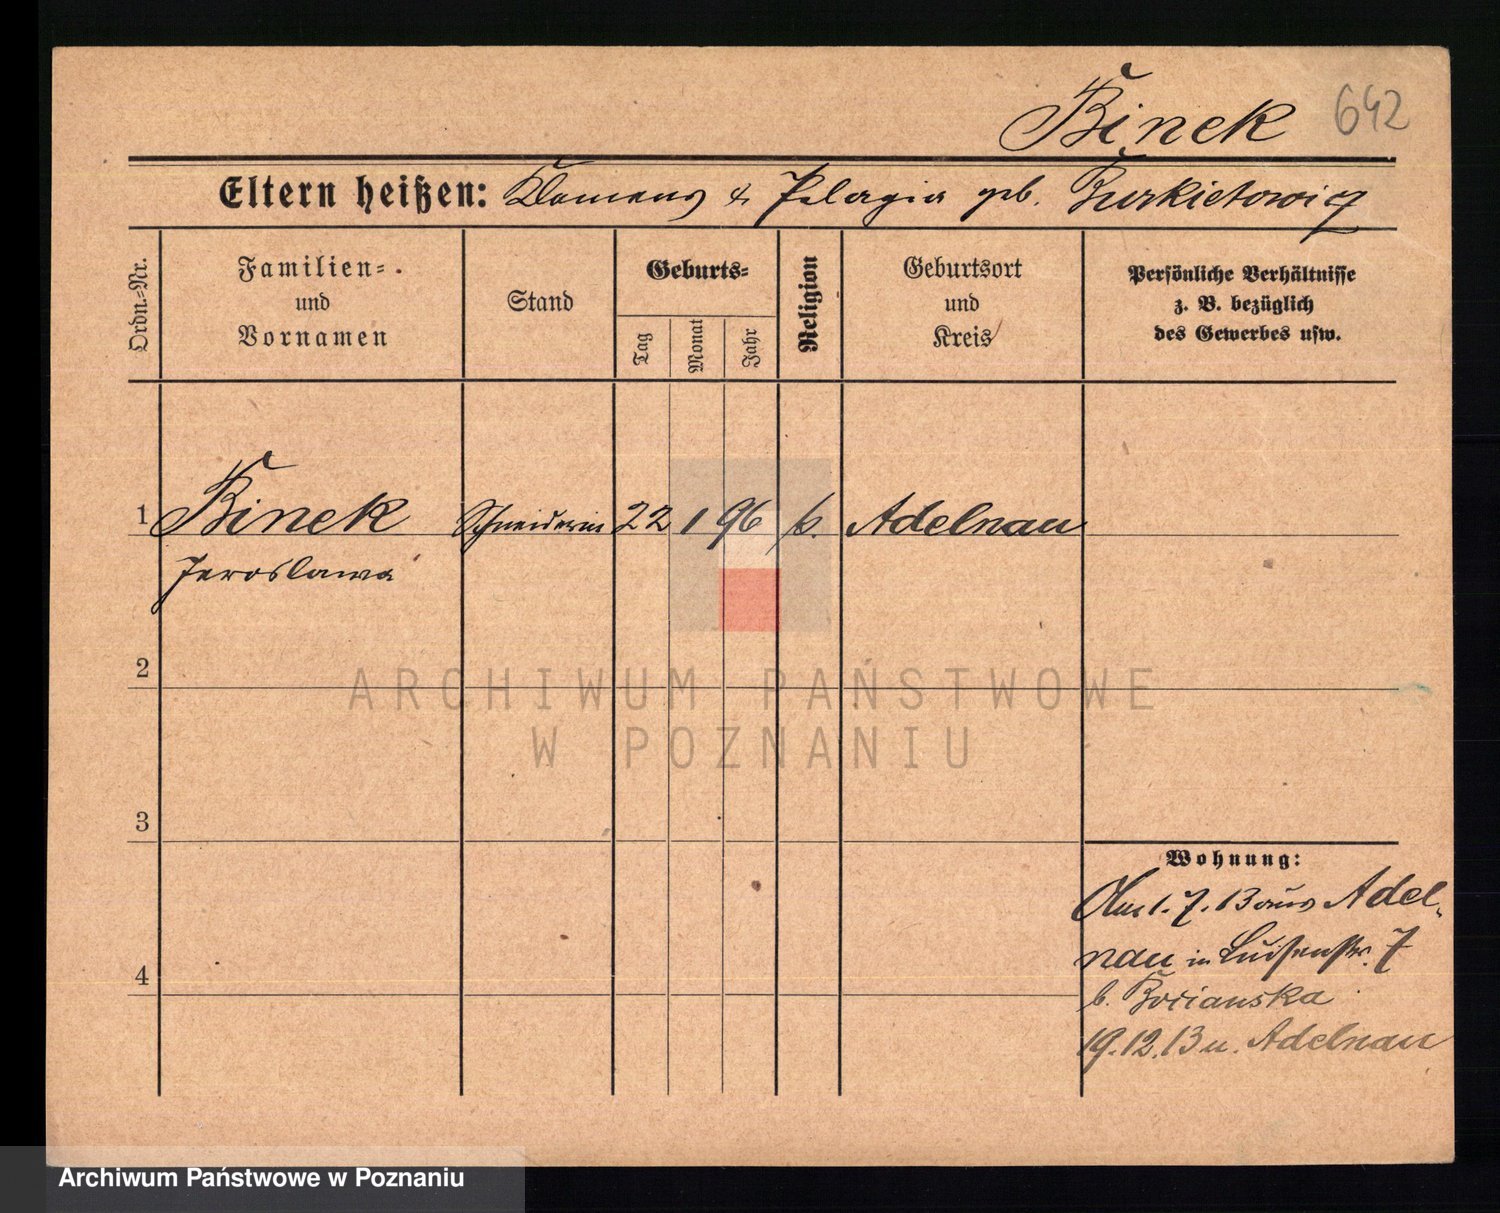 Binek 642
Eltern heißen: Klemens & Pelagia geb. Burkietowicz
Ordn.-Nr.
Familien-
und
Vornamen
Stand
Geburts-
Tag
Monat
Jahr
Religion
Geburtsort
und
Kreis
Persönliche Verhältnisse
z. B. bezüglich
des Gewerbes usw.
1 Binek Schneiderin 22 1 96 k. Adelnau
Jaroslawa
2
3
4
Wohnung:
Am 1. 7. 13 aus Adel-
nau in Luisenstr. 7
b. Bocianska
19.12.13 n. Adelnau
ARCHIWUM PAŃSTWOWE
W POZNANIU
Archiwum Państwowe w Poznaniu